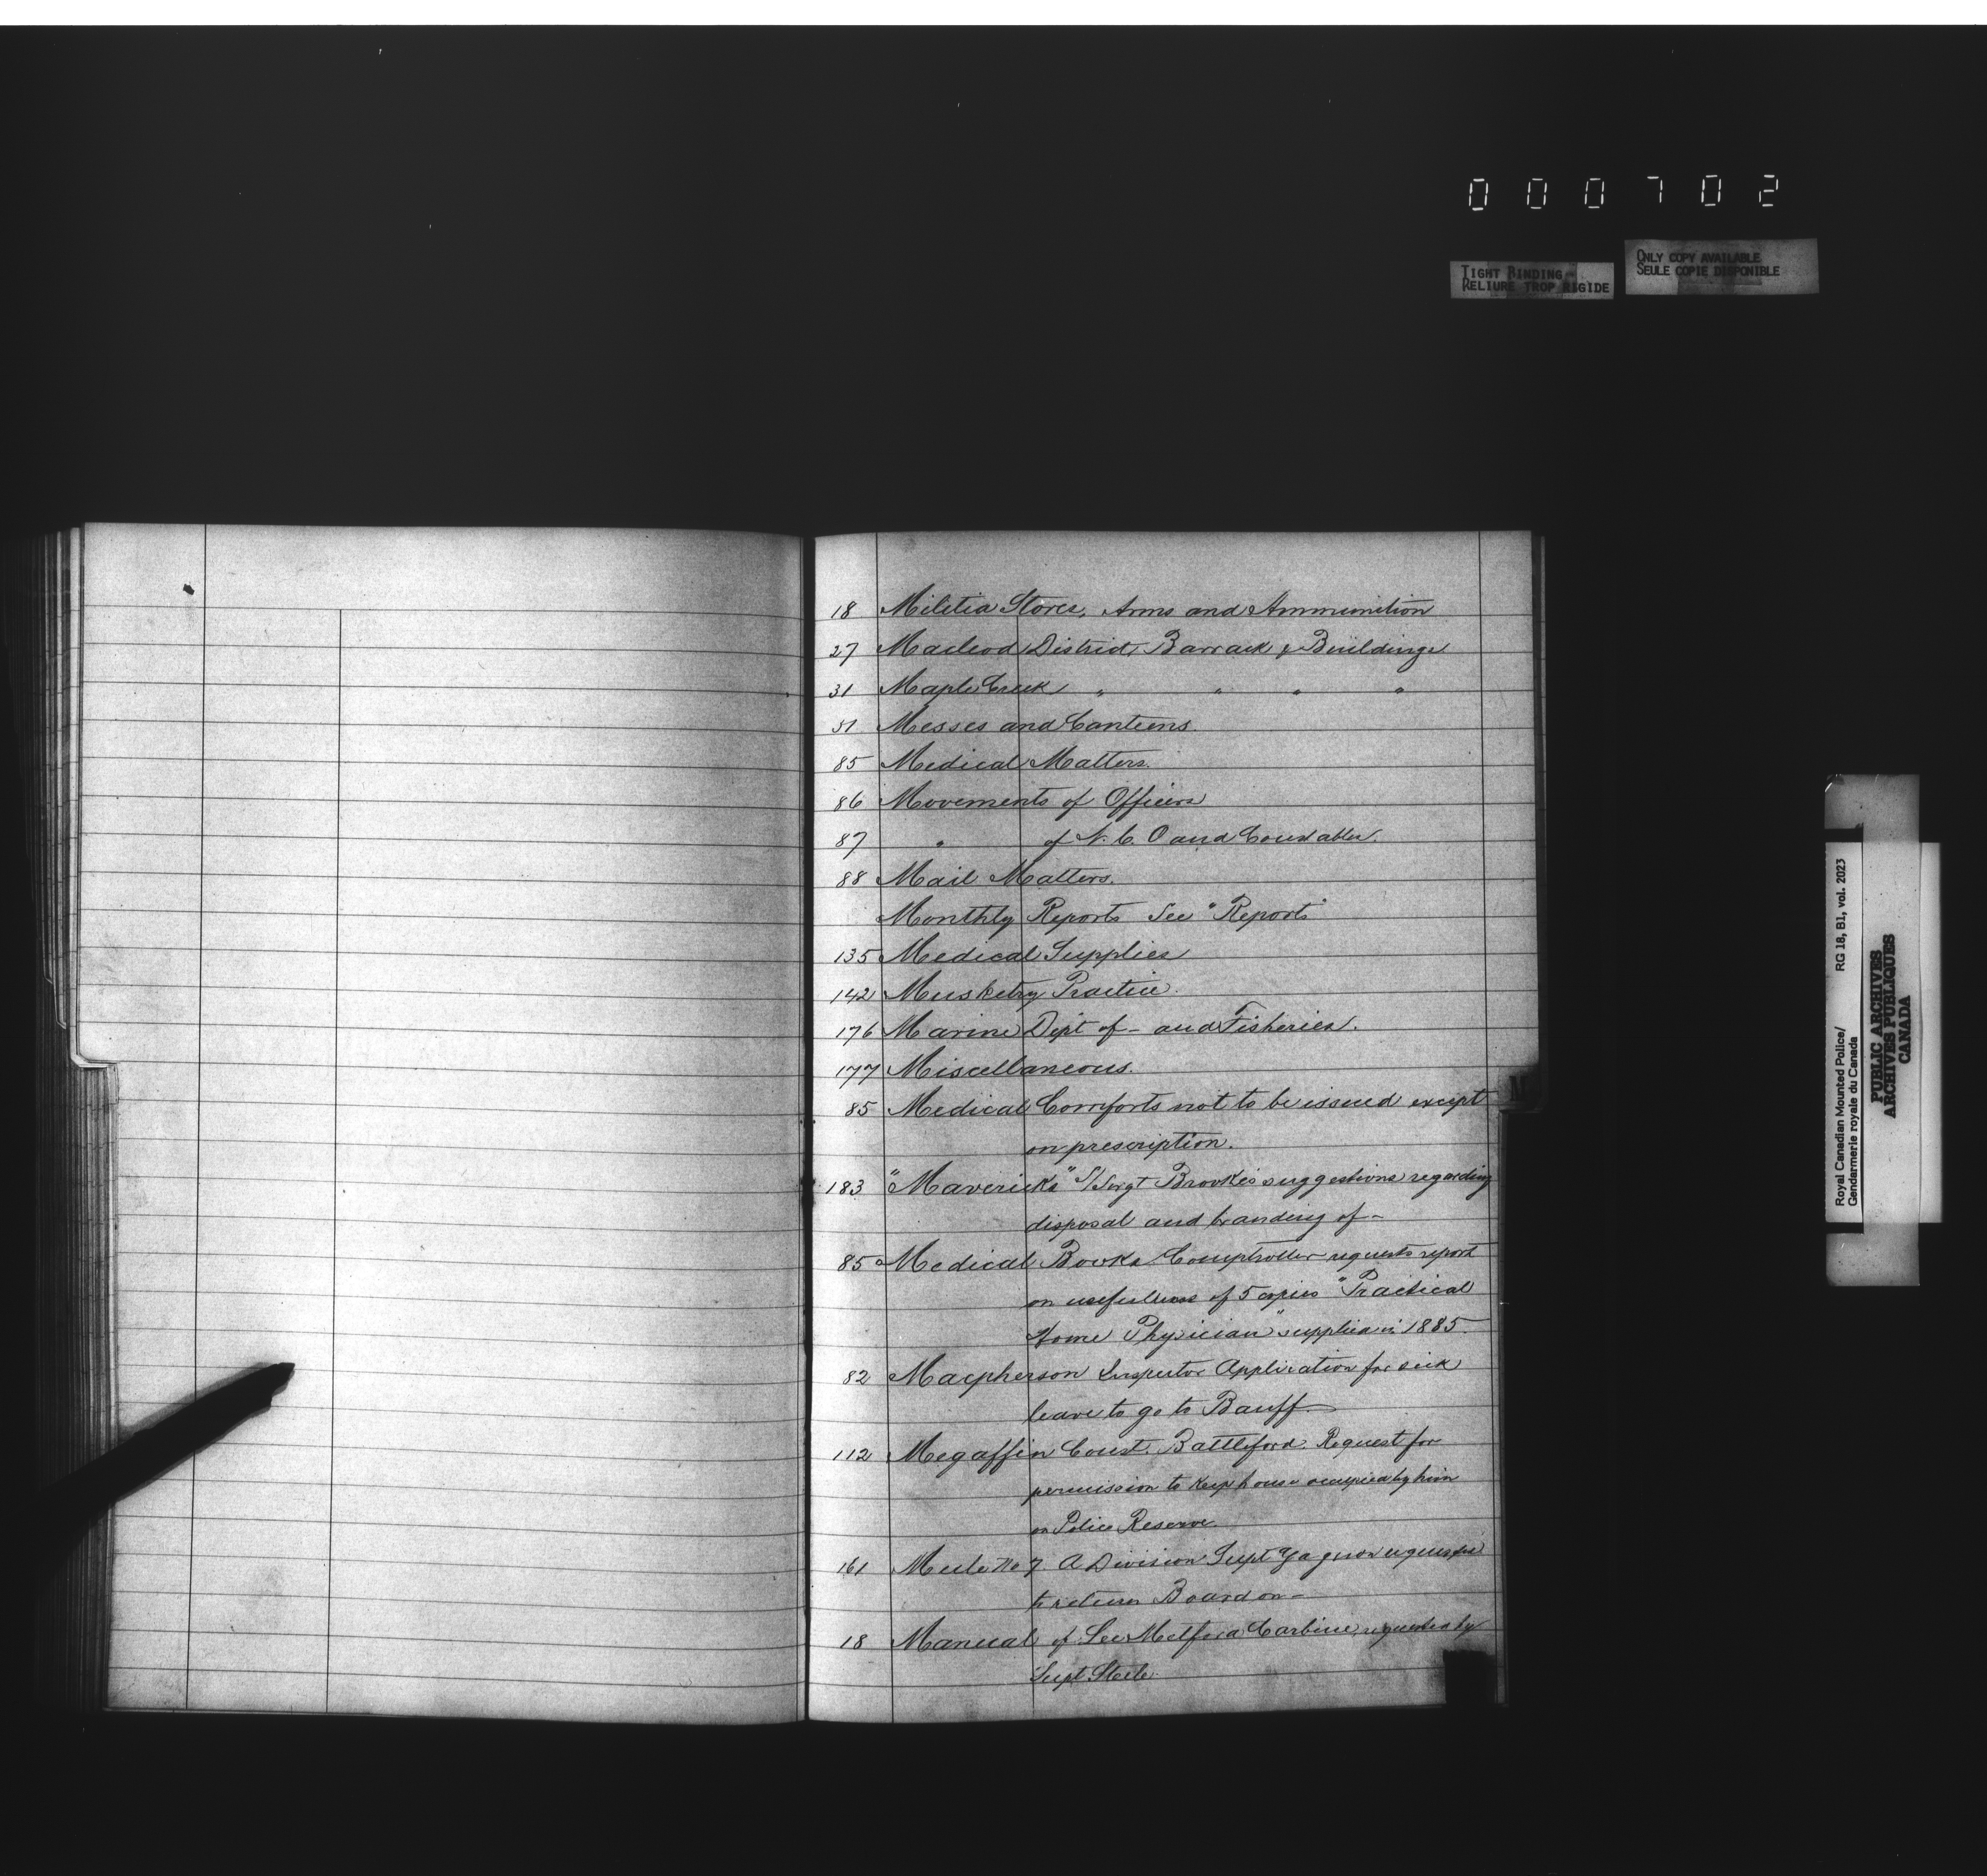 000702
TIGHT BINDING
RELIURE TROP RIGIDE
ONLY COPY AVAILABLE
SEULE COPIE DISPONIBLE
18 Militia Stores, Arms and Ammunition
27 Macleod District, Barrack & Buildings
31 Maple Creek " " " "
81 Messes and Canteens.
85 Medical Matters.
86 Movements of Officers
87 " of N. C. O and Constables.
88 Mail Matters.
Monthly Reports See "Reports"
135 Medical Supplies
142 Musketry Practice.
176 Marine Dept of - and Fisheries.
177 Miscellaneous.
85 Medical Comforts not to be issued except
on prescription.
183 "Mavericks" S/Sergt Brooke's suggestions regarding
disposal and branding of -
85 Medical Books Comptroller requests report
on usefulness of 5 copies "Practical
Home Physician" supplied in 1885.
82 Macpherson Inspector Application for sick
leave to go to Banff.
112 Megaffin Const. Battleford. Request for
permission to keep house occupied by him
on Police Reserve.
161 Mule No 7. A Division Supt Gagnon requested
to return Board on -
18 Manual of Lee Metford Carbine, requested by
Supt Steele.
M
Royal Canadian Mounted Police/
Gendarmerie royale du Canada
RG 18, B1, vol. 2023
PUBLIC ARCHIVES
ARCHIVES PUBLIQUES
CANADA